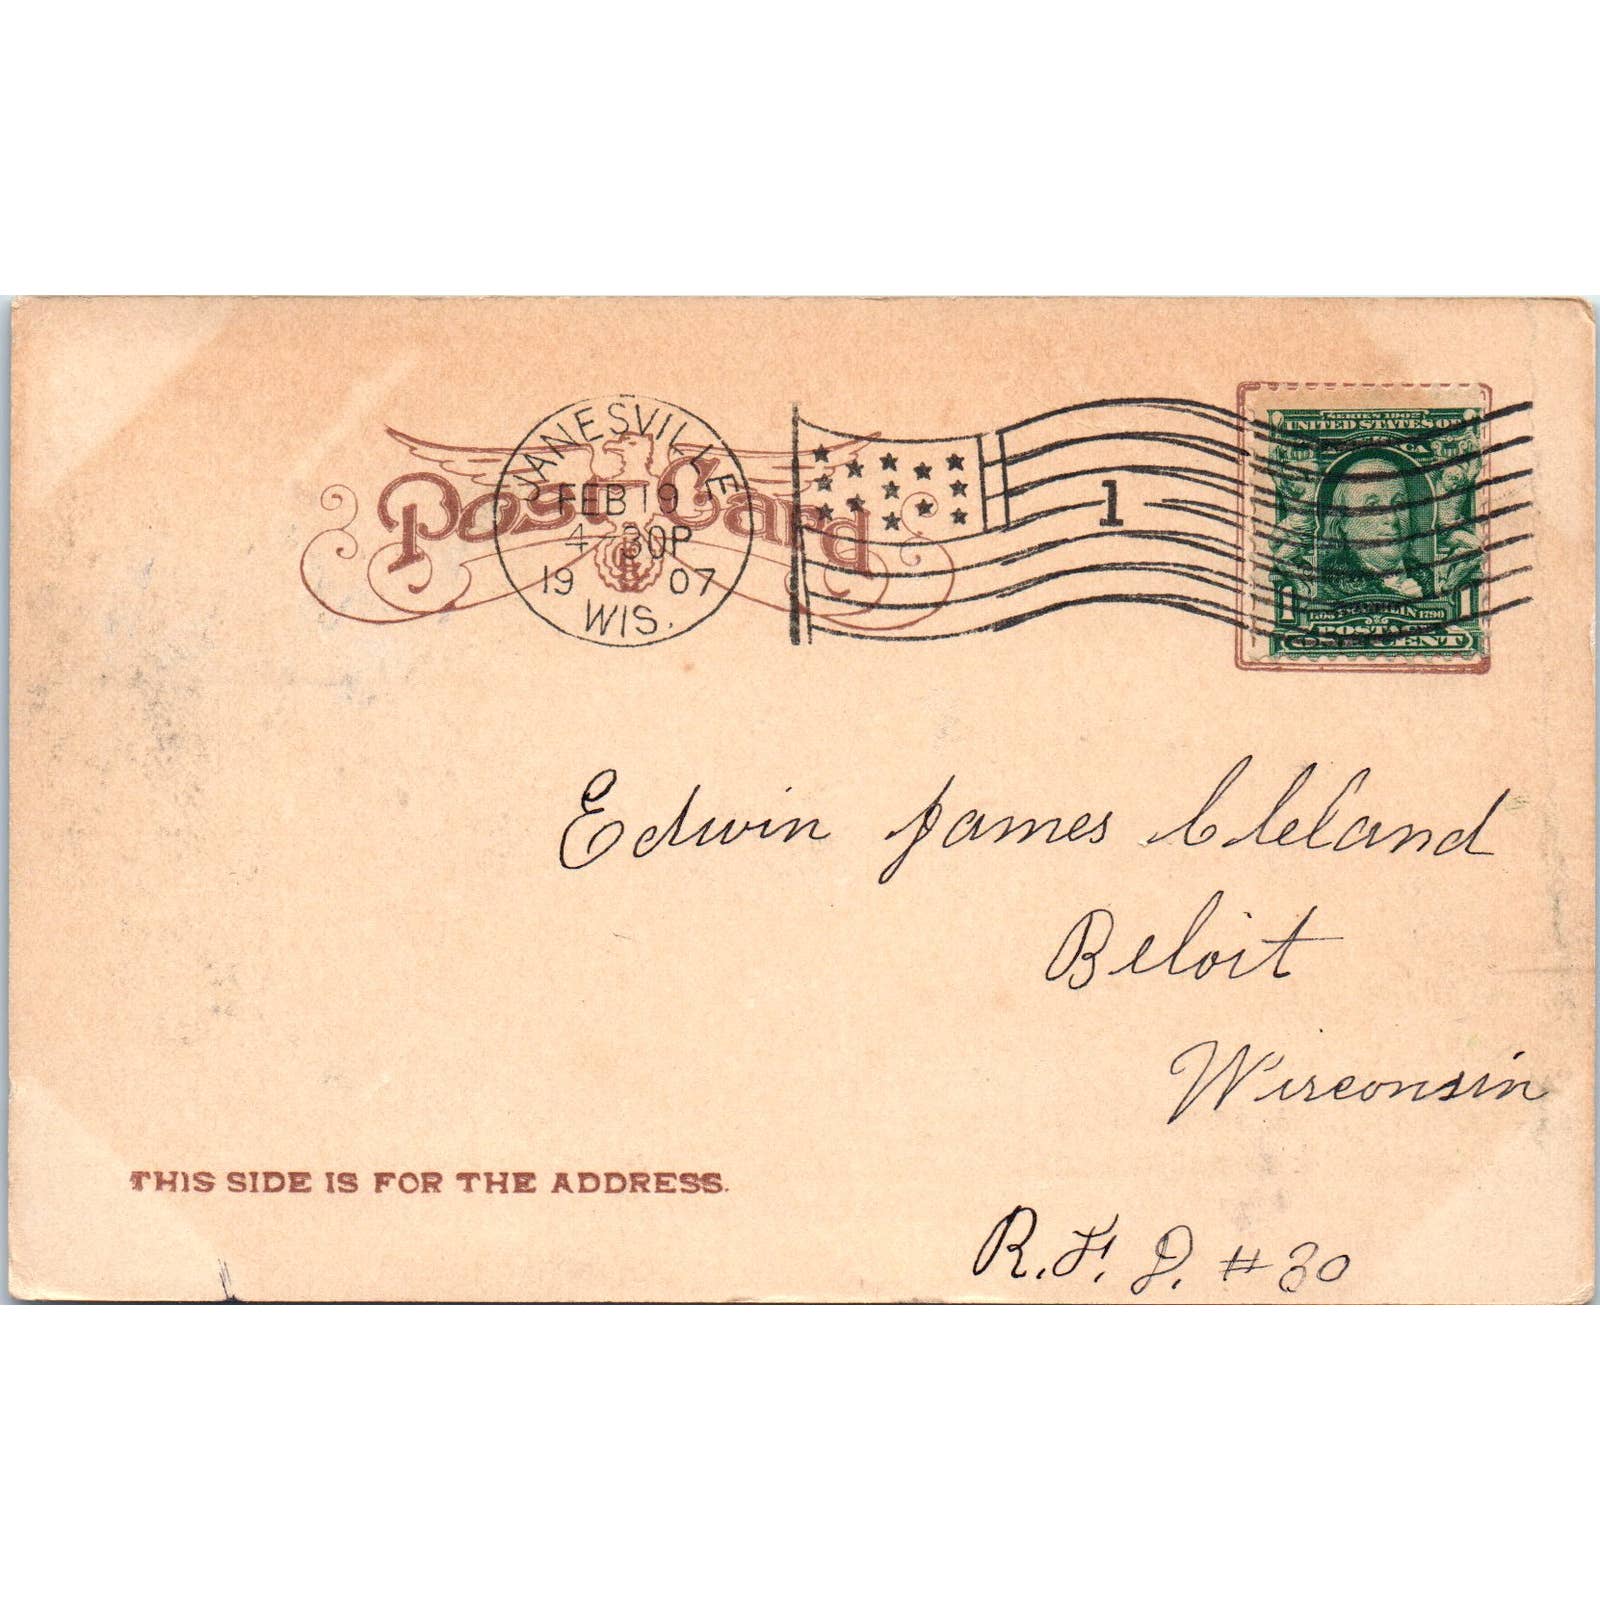 Post Card
JANESVILLE
FEB 19
4-30P
19 07
WIS.
1
SERIES 1902
UNITED STATES OF
1 1
POSTAGE
ONE CENT
Edwin James Cleland
Beloit
Wisconsin
THIS SIDE IS FOR THE ADDRESS.
R.F.D. #30